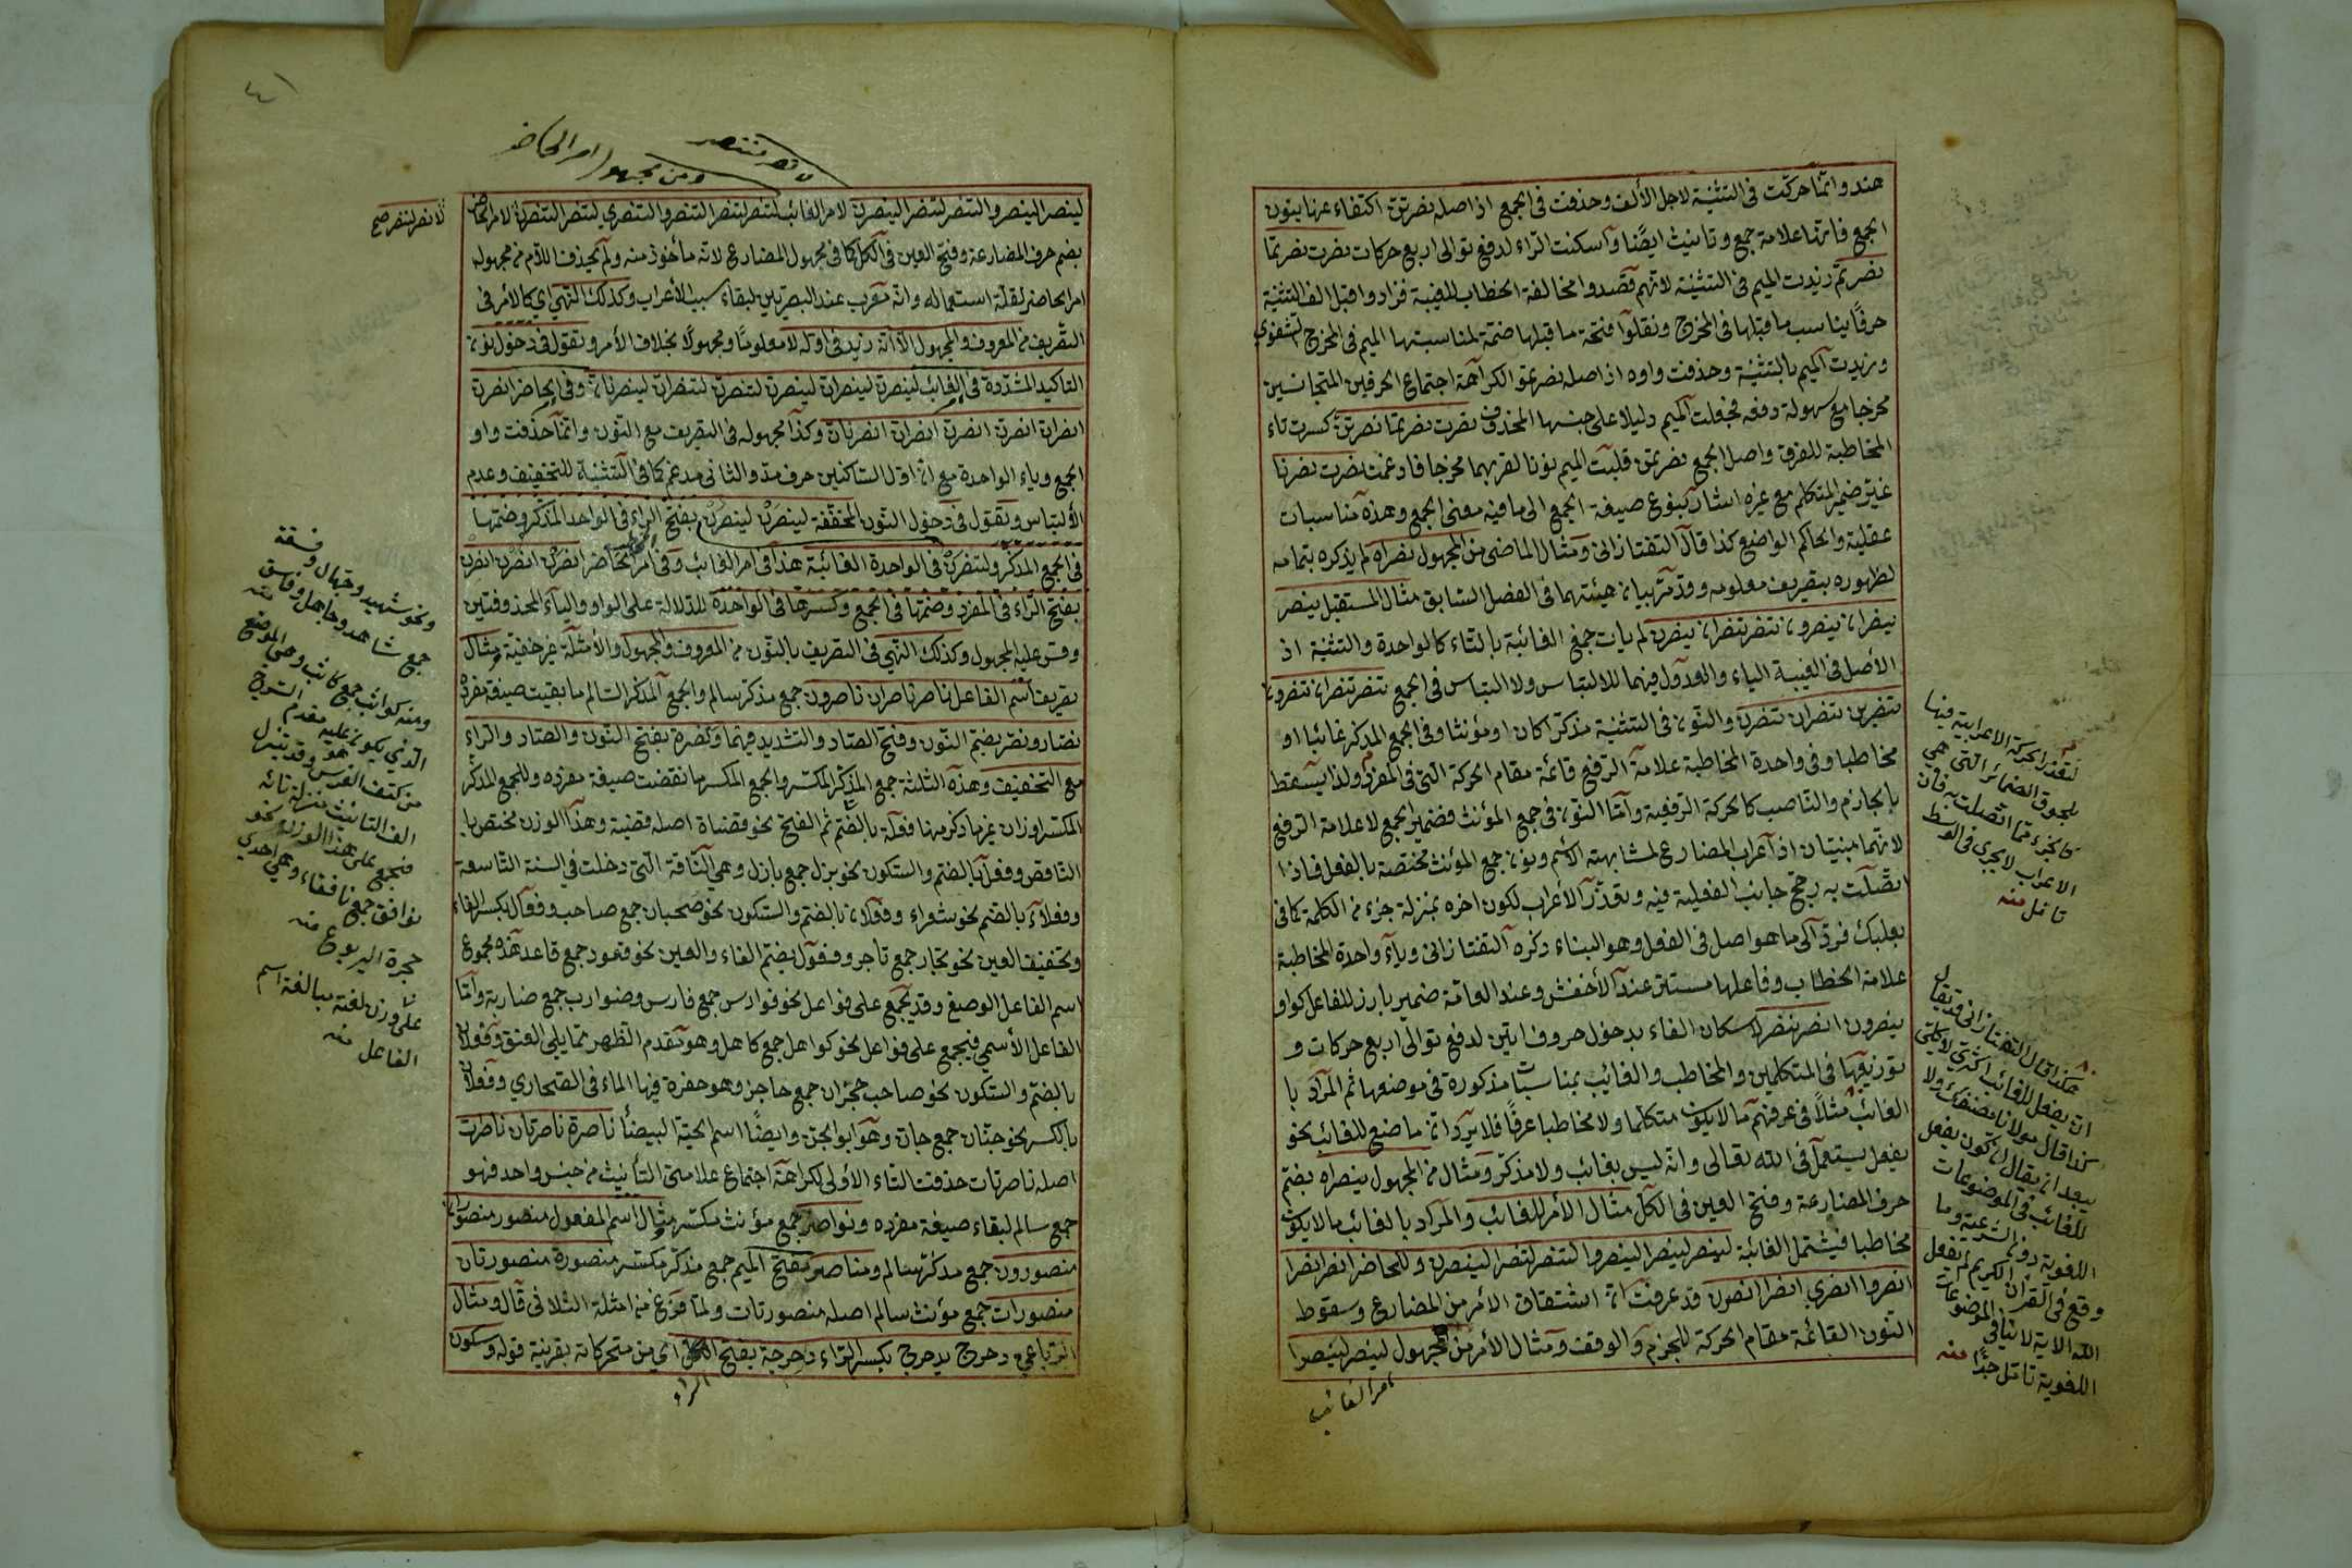 هند وانما حركت فى التثنية لاجل الألف وحذفت فى الجمع اذ اصله نصرتن اكتفاء عنها بنون
الجمع فانها علامة جمع وتانيث ايضا واسكنت الراء لدفع توالى اربع حركات نصرت نصرتما
نصرتم زيدت الميم فى التثنية لانهم قصدوا مخالفة الخطاب للغيبة فزادوا قبل الف التثنية
حرفا يناسب ما قبلها فى المخرج ونقلوا فتحة ما قبلها ضمة لمناسبتها الميم فى المخرج الشفوي
وزيدت الميم بالتثنية وحذفت واوه اذ اصله نصرتمو الكراهة اجتماع الحرفين المتجانسين
مخرجا مع سهولة دفعه فجعلت الميم دليلا على جنسها المحذوف نصرت نصرتما نصرتن كسرت تاء
المخاطبة للفرق واصل الجمع نصرتمن قلبت الميم نونا لقربهما مخرجا فادغمت نصرت نصرنا
غير ضمير المتكلم مع غيره اشارة بنوع صيغة الجمع الى ما فيه معنى الجمع وهذه مناسبات
عقلية والحاكم الواضع كذا قال التفتازانى ومثال الماضى من المجهول نصراه لم يذكره بتمامه
لظهوره بتصريف معلومه وقد مر بيان هيئتهما فى الفصل السابق مثال المستقبل ينصر
ينصران ينصرون تنصر تنصران ينصرن لم يات جمع الغائبة بالتاء كالواحدة والتثنية اذ
الأصل فى الغيبة الياء والعدول فيهما للالتباس ولا التباس فى الجمع تنصر تنصران تنصرون
تنصرين تنصران تنصرن والنون فى التثنية مذكرا كان او مؤنثا وفى الجمع المذكر غائبا او
مخاطبا وفى واحدة المخاطبة علامة الرفع قائمة مقام الحركة التى فى المفرد ولذا يسقط
بالجازم والناصب كالحركة الرفعية واما النون فى جمع المؤنث فضمير الجمع لا علامة الرفع
لانهما مبنيتان اذ اعراب المضارع لمشابهته الاسم ونون جمع المؤنث مختصة بالفعل فاذا
اتصلت به رجح جانب الفعلية فيه وتعذر الأعراب لكون اخره بمنزلة جزء من الكلمة كما فى
بعلبك فرد الى ما هو اصل فى الفعل وهو البناء ذكره التفتازانى وياء واحدة المخاطبة
علامة الخطاب وفاعلها مستتر عند الأخفش وعند العامة ضمير بارز للفاعل كواو
ينصرون انصر بنصر لاسكان الفاء بدخول حروف اتين لدفع توالى اربع حركات و
توزيعها فى المتكلمين والمخاطب والغائب بمناسبات مذكورة فى موضعها ثم المراد با
الغائب مثلا فى عرفهم ما لا يكون متكلما ولا مخاطبا عرفا فلا يرد ان ما صنع للغائب نحو
يفعل يستعمل فى الله تعالى وانه ليس بغائب ولا مذكر ومثال من المجهول ينصراه بضم
حرف المضارعة وفتح العين فى الكل مثال الأمر للغائب والمراد بالغائب ما لا يكون
مخاطبا فيشتمل الغائبة لينصر لينصرا لينصروا لتنصر لتنصرا لينصرن وللحاضر انصر انصرا
انصروا انصري انصرا انصرن قد عرفت ان اشتقاق الأمر من المضارع وسقوط
النون القائمة مقام الحركة للجزم والوقف ومثال الأمر من المجهول لينصر لينصرا
امر الغائب
لتعذر الحركة الاعرابية فيها
لحوق الضمائر التى هى
كالجزء مما اتصلت به فان
الاعراب لا يجرى فى الوسط
تامل منه
هكذا قال التفتازانى وقد يقال
ان يفعل للغائب اكثرى لا كلى
كذا قال مولانا مصنفك ولا
يبعد ان يقال ان كون يفعل
للغائب فى الموضوعات
اللغوية دون الشرعية وما
وقع فى القرآن الكريم لم يفعل
الله الاية لا ينافى الموضوعات
اللغوية تامل جدا منه
٤١
لا نصر لننصر
ومن مجهول امر الحاضر
لينصر لينصروا لتنصر لتنصرا لينصرن لامر الغائب لتنصر لتنصرا لتنصروا لتنصري لتنصرا لتنصرن لامر الحاضر
لانصر لننصر صح
بضم حرف المضارعة وفتح العين فى الكل كما فى مجهول المضارع لانه مأخوذ منه ولم يحذف اللام من مجهول
امر الحاضر لقلة استعماله وانه معرب عند البصريين لبقاء سبب الأعراب وكذلك النهي اي كالأمر فى
التصريف من المعروف والمجهول الا انه زيد فى اوله لا معلوما ومجهولا بخلاف الأمر وتقول فى دخول نون
التاكيد المشددة فى الغائب لينصرن لينصران لينصرن لتنصرن لتنصران لينصرنان وفى الحاضر انصرن
انصران انصرن انصرن انصران انصرنان وكذا مجهوله فى التصريف مع النون وانما حذفت واو
الجمع وياء الواحدة مع ان اول الساكنين حرف مد والثانى مدغم كما فى التثنية للتخفيف وعدم
الألتباس وتقول فى دخول النون المخففة لينصرن لينصرن بفتح الراء فى الواحد المذكر وضمتها
فى الجمع المذكر ولتنصرن فى الواحدة الغائبة هذا فى امر الغائب وفى امر الحاضر انصرن انصرن انصرن
بفتح الراء فى المفرد وضمتها فى الجمع وكسرها فى الواحدة للدلالة على الواو والياء المحذوفتين
وقس عليه المجهول وكذلك النهي فى التصريف بالنون من المعروف والمجهول والأمثلة غير خفية ومثال
تصريف اسم الفاعل ناصر ناصران ناصرون جمع مذكر سالم والجمع المذكر السالم ما بقيت صيغة مفرده
نصار ونصر بضم النون وفتح الصاد والتشديد فيهما ونصرة بفتح النون والصاد والراء
مع التخفيف وهذه الثلثة جمع المذكر المكسر والجمع المكسر ما نقضت صيغة مفرده وللجمع المذكر
المكسر اوزان غيرها ذكر منها فعلة بالضم ثم الفتح نحو قضاة اصله قضية وهذا الوزن مختص با
الناقص وفعل بالضم والسكون نحو بزل جمع بازل وهى الناقة التى دخلت فى السنة التاسعة
وفعلاء بالضم نحو شعراء وفعلان بالضم والسكون نحو صحبان جمع صاحب وفعال بكسر الفاء
وتخفيف العين نحو تجار جمع تاجر وفعول بضم الفاء والعين نحو قعود جمع قاعد هذه مجموع
اسم الفاعل الوصفى وقد يجمع على فواعل نحو فوارس جمع فارس وضوارب جمع ضاربة واما
الفاعل الأسمي فيجمع على فواعل نحو كواهل جمع كاهل وهو مقدم الظهر مما يلى العنق وفعلان
بالضم والسكون نحو صاحب حجران جمع حاجز وهو حفرة فيها الماء فى الصحاري وفعلان
بالكسر نحو جنان جمع جان وهو ابو الجن وايضا اسم الحية البيضا ناصرة ناصرتان ناصرات
اصله ناصرتات حذفت التاء الأولى لكراهة اجتماع علامتى التأنيث من جنس واحد فهو
جمع سالم لبقاء صيغة مفرده ونواصر جمع مؤنث مكسر مثال اسم المفعول منصور منصوران
منصورون جمع مذكر سالم ومناصر بفتح الميم جمع مذكر مكسر منصورة منصورتان
منصورات جمع مؤنث سالم اصله منصورتات ولما فرغ من امثلة الثلاثى قال ومثال
الرباعي دحرج يدحرج بكسر الراء دحرجة بفتح اي من متحركاته بقرينة قوله وسكون
الراء
ونحو شهيد وجهال وفسقة
جمع شاهد وجاهل وفاسق منه
ومنه كواثب جمع كاثب وهى الموضع
الذي يكون عليه مقدم السرج
من كتف الفرس وقد تنزل
الف التانيث منزلة تائه
فتجمع على هذا الوزن نحو
نوافق جمع نافقاء وهى احدي
حجرة اليربوع منه
على وزن لغته مبالغة اسم
الفاعل منه